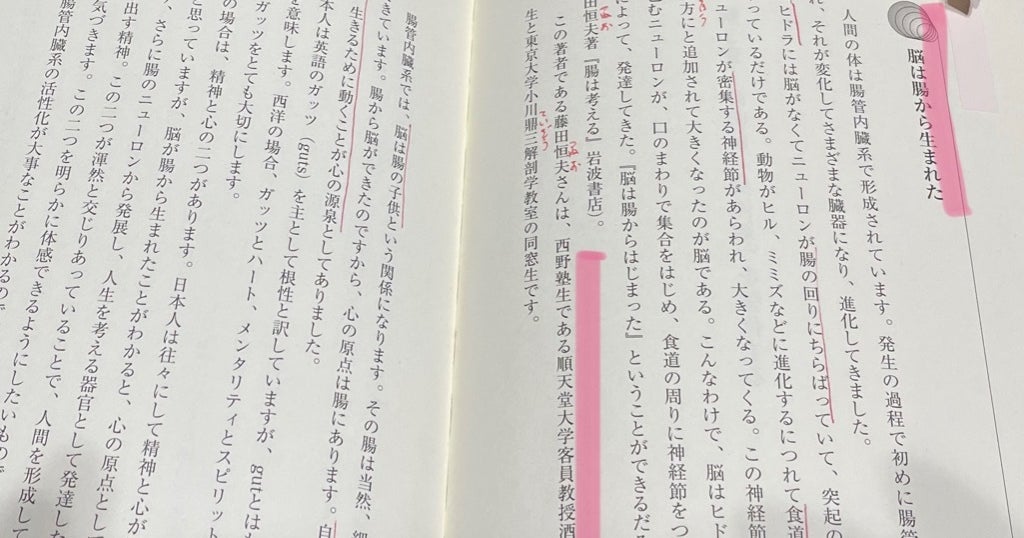 脳は腸から生まれた
人間の体は腸管内臓系で形成されています。発生の過程で初めに腸管
れ、それが変化してさまざまな臓器になり、進化してきました。
ヒドラには脳がなくてニューロンが腸の回りにちらばっていて、突起の
っているだけである。動物がヒル、ミミズなどに進化するにつれて食道
ューロンが密集する神経節があらわれ、大きくなってくる。この神経節
方にと追加されて大きくなったのが脳である。こんなわけで、脳はヒド
むニューロンが、口のまわりで集合をはじめ、食道の周りに神経節をつ
によって、発達してきた。『脳は腸からはじまった』ということができるだろ
田恒夫著『腸は考える』岩波書店)。
この著者である藤田恒夫さんは、西野塾生である順天堂大学客員教授酒
生と東京大学小川鼎三解剖学教室の同窓生です。
腸管内臓系では、脳は腸の子供という関係になります。その腸は当然、細
きています。腸から脳ができたのですから、心の原点は腸にあります。白
生きるために動くことが心の源泉としてありました。
本人は英語のガッツ(guts)を主として根性と訳していますが、gutとはも
を意味します。西洋の場合、ガッツとハート、メンタリティとスピリット
ガッツをとても大切にします。
の場合は、精神と心の二つがあります。日本人は往々にして精神と心が
と思っていますが、脳が腸から生まれたことがわかると、心の原点として
、さらに腸のニューロンから発展し、人生を考える器官として発達した
出す精神。この二つが渾然と交じりあっていることで、人間を形成して
気づきます。この二つを明らかに体感できるようにしたいもので
腸管内臓系の活性化が大事なことがわかるので